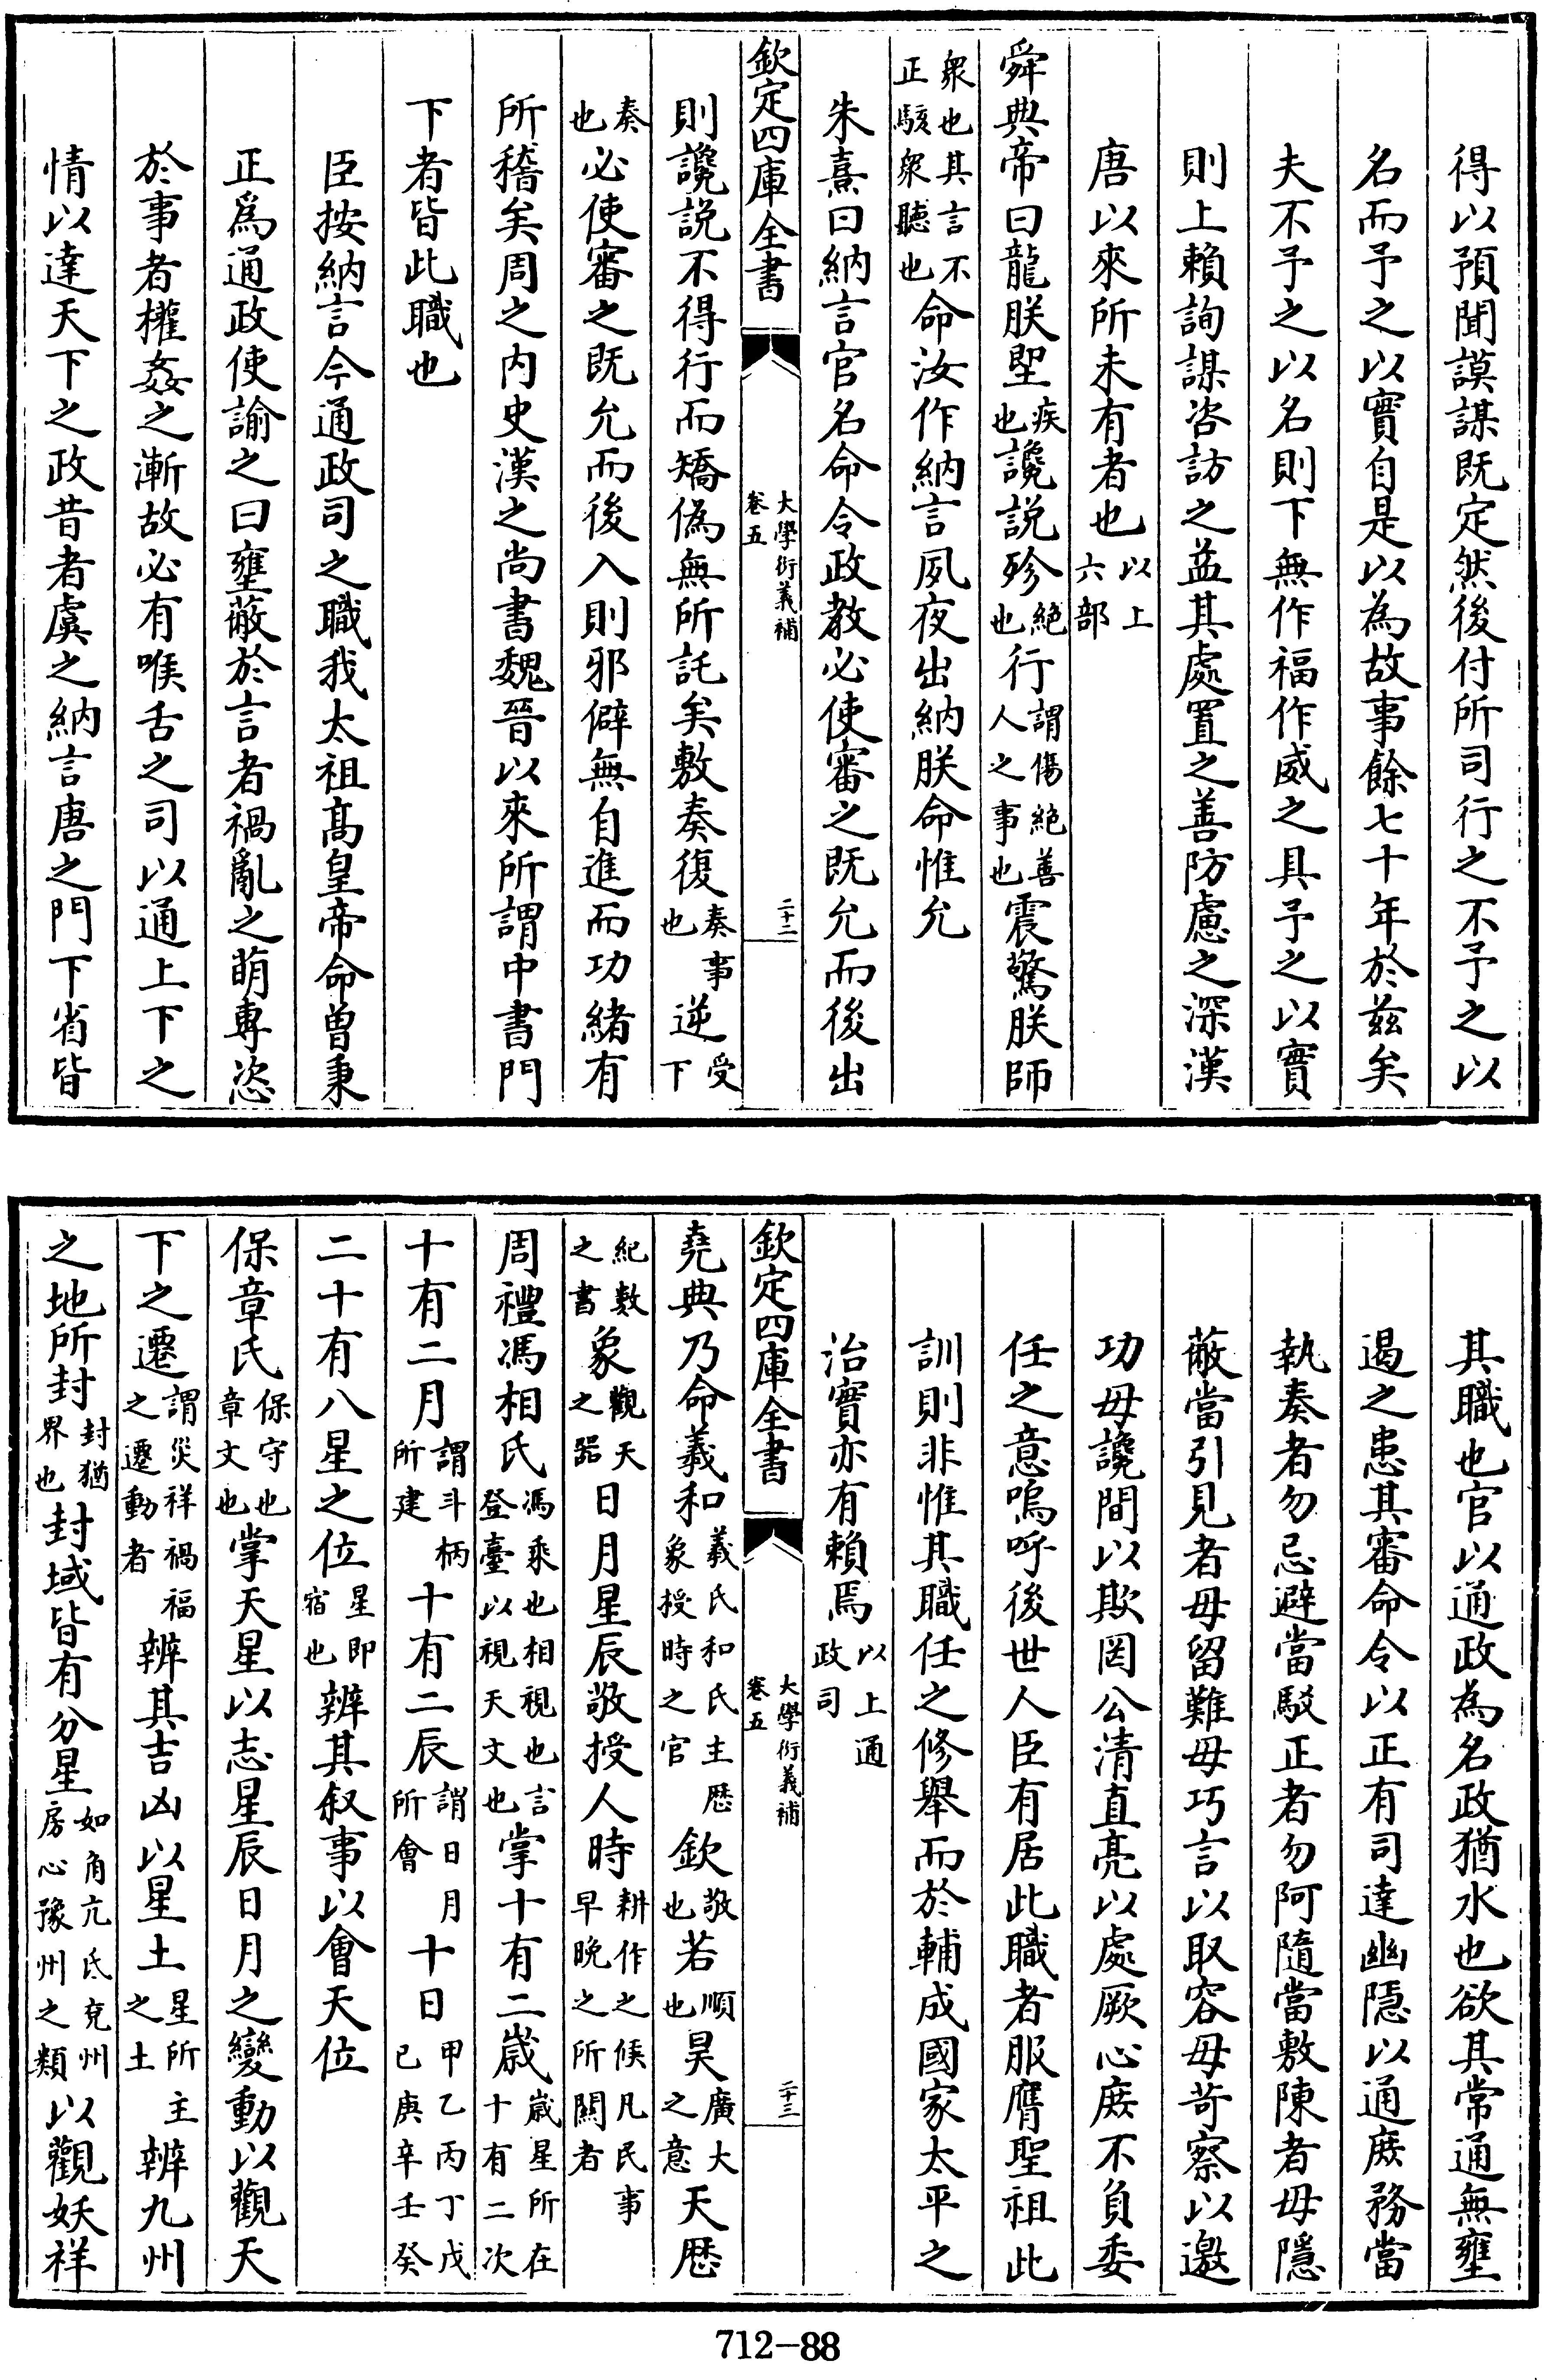 得以預聞謨謀既定然後付所司行之不予之以
名而予之以實自是以為故事餘七十年於兹矣
夫不予之以名則下無作福作威之具予之以實
則上賴詢謀咨訪之益其處置之善防慮之深漢
唐以來所未有者也以上六部
舜典帝曰龍朕堲疾也讒説殄絕也行謂傷絕善人之事也震驚朕師
衆也其言不正駭衆聽也命汝作納言夙夜出納朕命惟允
朱熹曰納言官名命令政教必使審之既允而後出
欽定四庫全書 大學衍義補 卷五 二十二
則讒説不得行而矯偽無所託矣敷奏復奏事也逆受下
奏也必使審之既允而後入則邪僻無自進而功緒有
所稽矣周之内史漢之尚書魏晉以來所謂中書門
下者皆此職也
臣按納言今通政司之職我太祖髙皇帝命曾秉
正爲通政使諭之曰壅蔽於言者禍亂之萌專恣
於事者權姦之漸故必有喉舌之司以通上下之
情以達天下之政昔者虞之納言唐之門下省皆
其職也官以通政為名政猶水也欲其常通無壅
遏之患其審命令以正有司達幽隱以通庶務當
執奏者勿忌避當駁正者勿阿隨當敷陳者毋隱
蔽當引見者毋留難毋巧言以取容毋苛察以邀
功毋讒間以欺罔公清直亮以處厥心庶不負委
任之意嗚呼後世人臣有居此職者服膺聖祖此
訓則非惟其職任之修舉而於輔成國家太平之
治實亦有賴焉以上通政司
欽定四庫全書 大學衍義補 卷五 二十三
堯典乃命羲和羲氏和氏主歴象授時之官欽敬也若順也昊廣大之意天歴
紀數之書象觀天之器日月星辰敬授人時耕作之候凡民事早晚之所關者
周禮馮相氏馮乘也相視也言登臺以視天文也掌十有二歲歲星所在十有二次
十有二月謂斗柄所建十有二辰謂日月所會十日甲乙丙丁戊己庚辛壬癸
二十有八星之位星即宿也辨其叙事以會天位
保章氏保守也章文也掌天星以志星辰日月之變動以觀天
下之遷謂災祥禍福之遷動者辨其吉凶以星土星所主之土辨九州
之地所封封猶界也封域皆有分星如角亢氐兗州房心豫州之類以觀妖祥
712-88